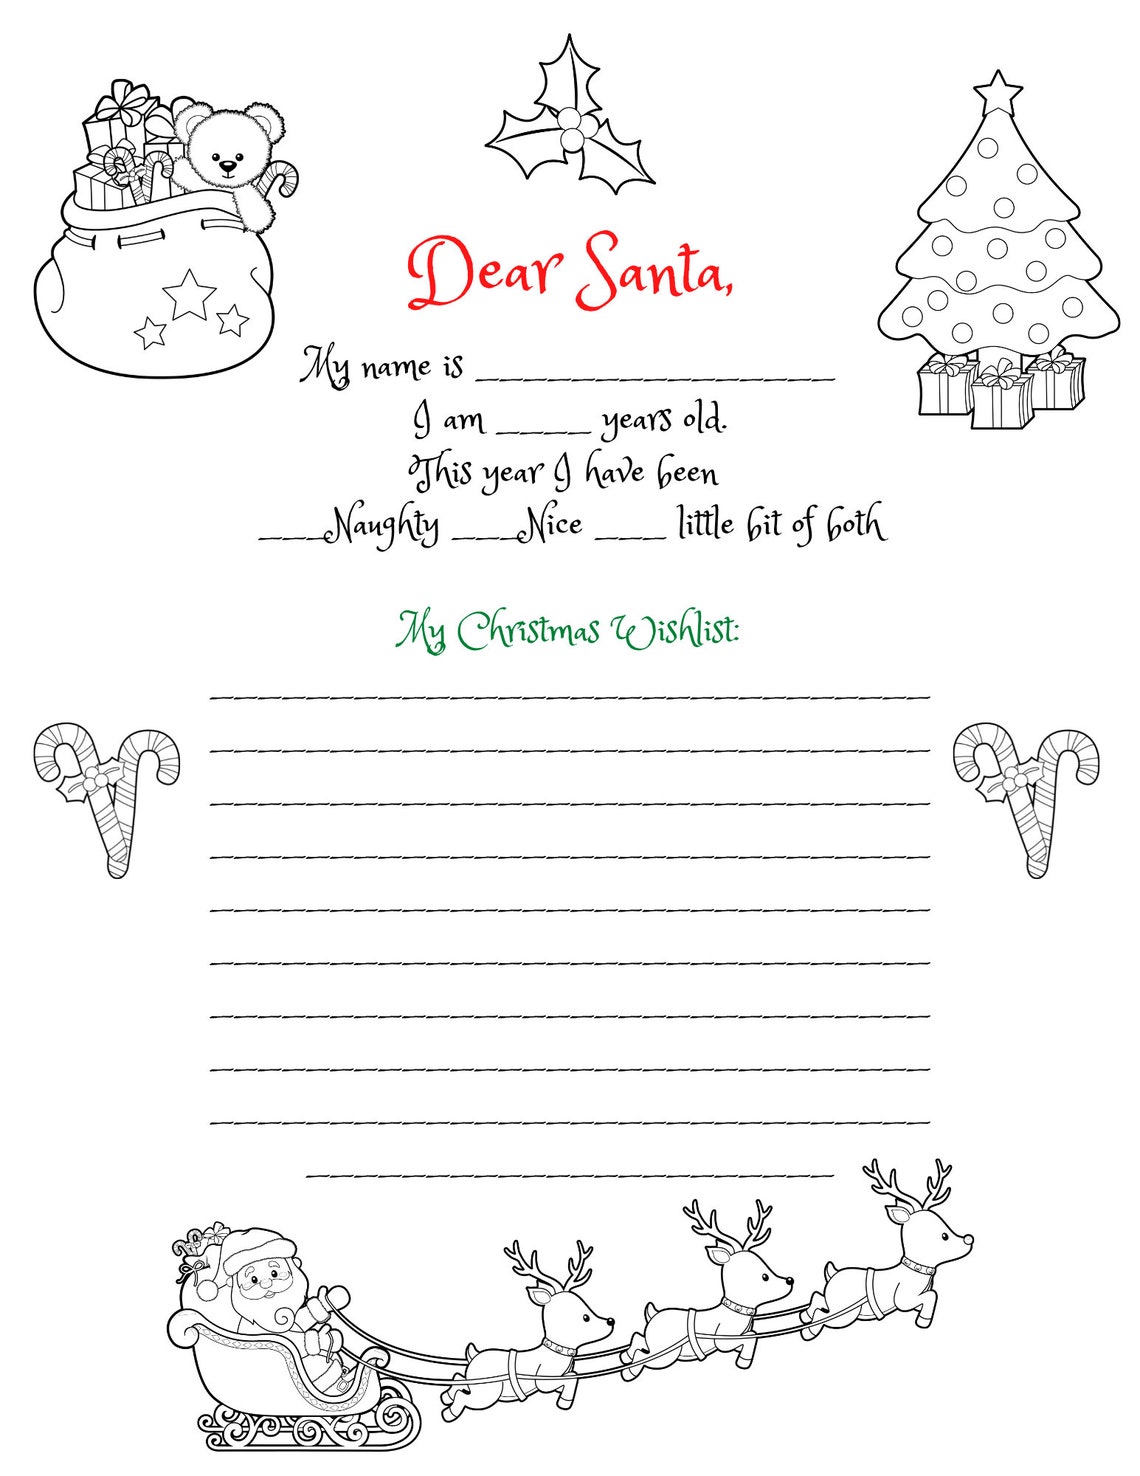 Dear Santa,
My name is _______________
I am ____ years old.
This year I have been
___Naughty ___Nice ___ little bit of both
My Christmas Wishlist:
______________________________
______________________________
______________________________
______________________________
______________________________
______________________________
______________________________
______________________________
______________________________
______________________